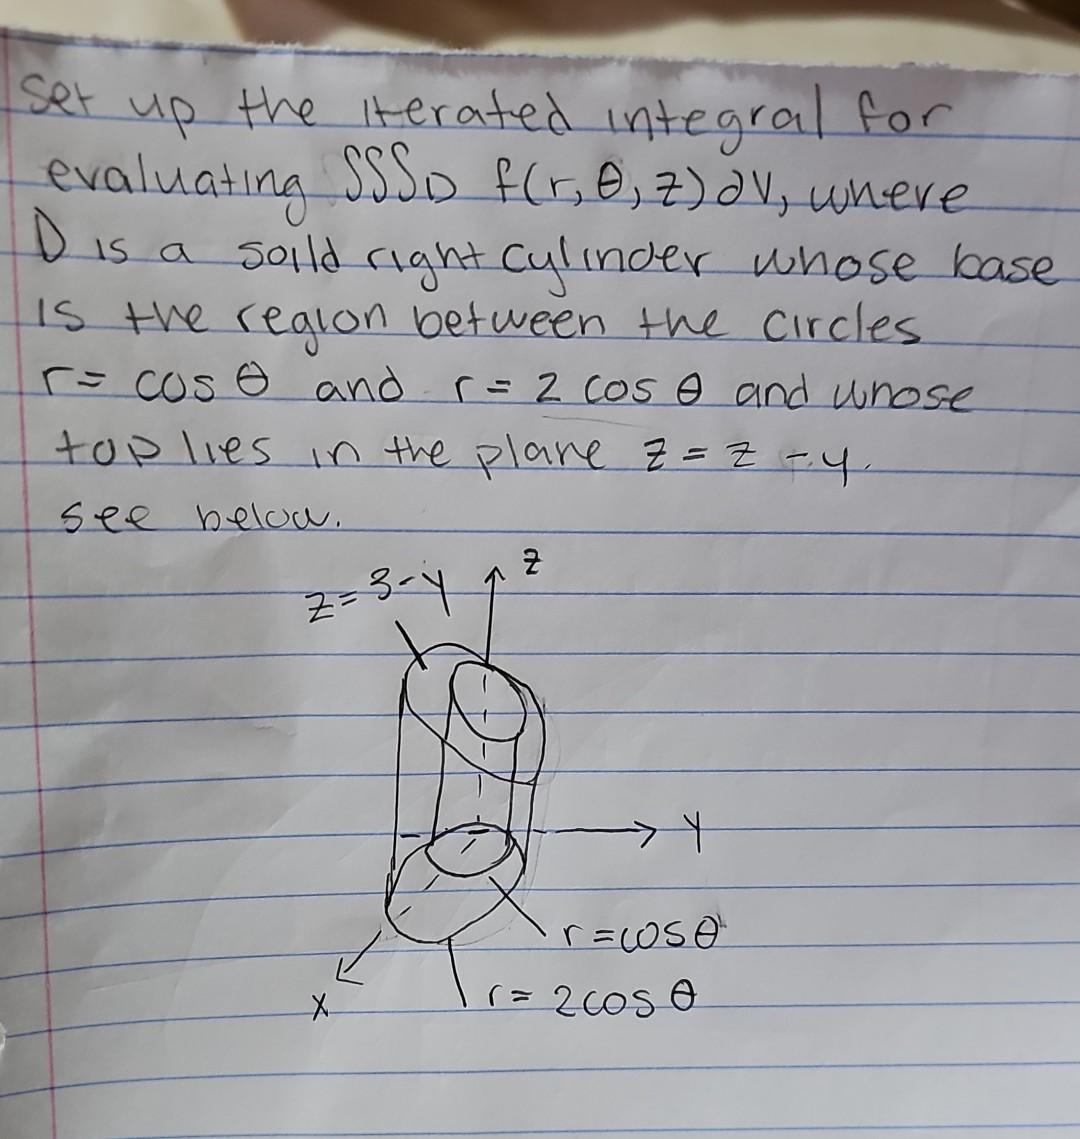 Set up the iterated integral for
evaluating SSSD f(r, θ, z) ∂V, where
D is a soild right cylinder whose base
is the region between the circles
r = cos θ and r = 2 cos θ and whose
top lies in the plane z = z - y.
see below.
z = 3-y
z
y
r = cos θ
x
r = 2 cos θ